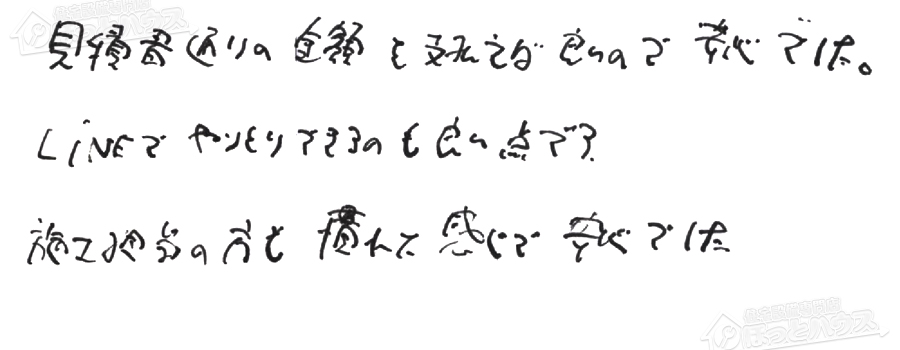 見積書通りの金額を支払えば良いので 安心でした。
LINEで やりとりできるのも良い点です
施工担当の方も 慣れた感じで 安心でした
ほっとハウス